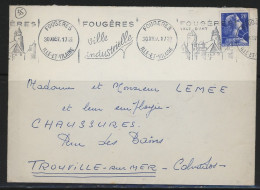 FOUGERES
30 AOUT 17H
ILLE-ET-VILAINE
FOUGÈRES
ville
industrielle
FOUGERES
ILLE-ET-VILAINE
FOUGÈRES
Madame et Monsieur LEMEE
et leur employée
CHAUSSURES
Rue des Bains
TROUVILLE-sur-MER - Calvados